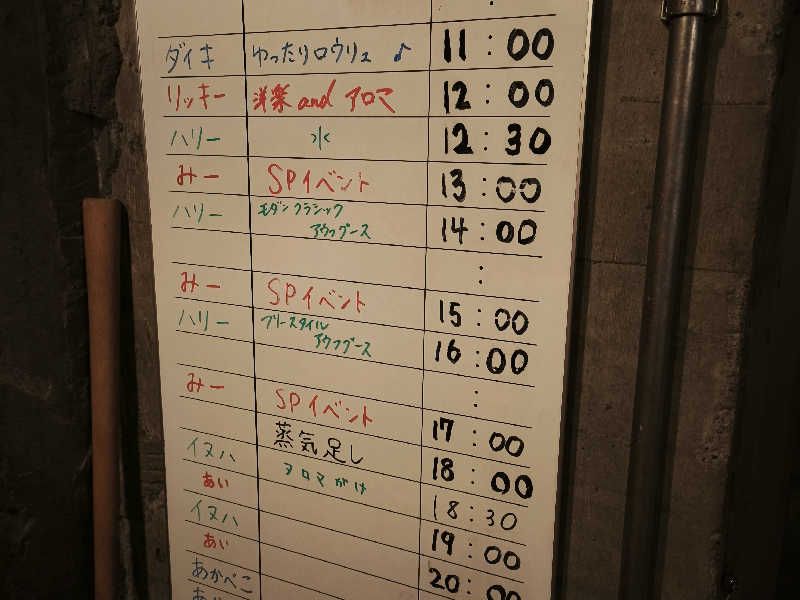 ダイキ ゆったりロウリュ ♪ 11:00
リッキー 洋楽 and アロマ 12:00
ハリー 水 12:30
みー SPイベント 13:00
ハリー モダンクラシック
アウフグース 14:00
:
みー SPイベント 15:00
ハリー フリースタイル
アウフグース 16:00
:
みー SPイベント 17:00
蒸気足し 18:00
イヌハ アロマがけ 18:30
あい 19:00
イヌハ 20:00
あい
あかべこ